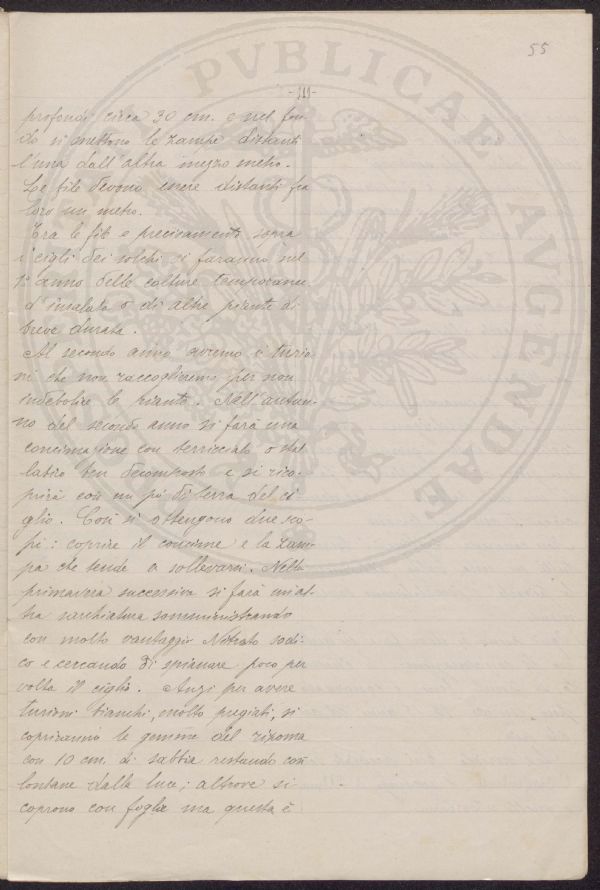 55
PVBLICAE AVGENDAE
-111-
profondi circa 30 cm. e nel fon-
do si mettono le zampe distanti
l'una dall'altra mezzo metro.
Le file devono essere distanti fra
loro un metro.
Tra le file e precisamente sopra
i cigli dei solchi si faranno nel
1° anno delle colture temporanee
d'insalata o di altre piante di
breve durata.
Al secondo anno avremo i turio-
ni che non raccoglieremo per non
indebolire le piante. Nell'autun-
no del secondo anno si farà una
concimazione con terricciato o stal-
latico ben decomposto e si rico-
prirà con un po' di terra del ci-
glio. Così si ottengono due sco-
pi: coprire il concime e la zam-
pa che tende a sollevarsi. Nella
primavera successiva si farà un'al-
tra sarchiatura somministrando
con molto vantaggio Nitrato sodi-
co e cercando di spianare poco per
volta il ciglio. Anzi per avere
turioni bianchi, molto pregiati, si
copriranno le gemme del rizoma
con 10 cm. di sabbia restando così
lontane dalla luce; altrove si
coprono con foglie ma questa è